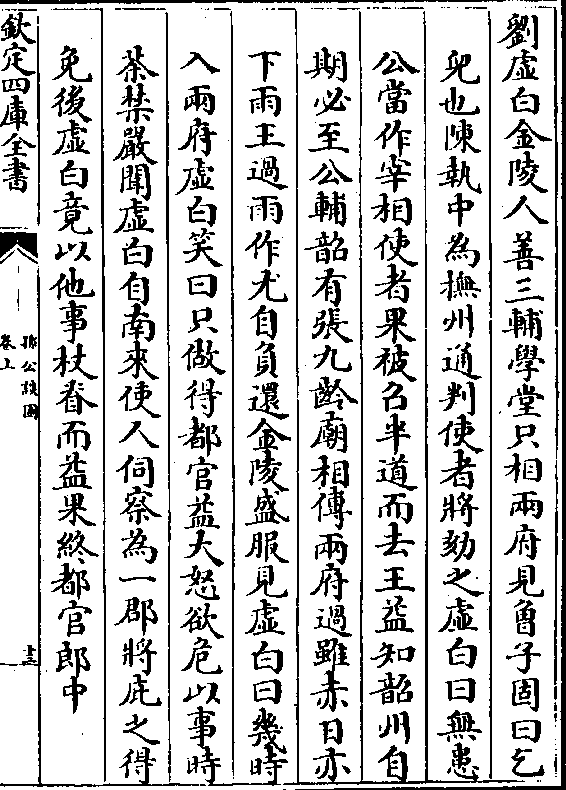 劉虛白金陵人善三輔學堂只相兩府見曾子固曰乞
兒也陳執中為撫州通判使者將劾之虛白曰無患
公當作宰相使者果被召半道而去王益知韶州自
期必至公輔韶有張九齡廟相傳兩府過雖赤日亦
下雨王過雨作尤自負還金陵盛服見虛白曰幾時
入兩府虛白笑曰只做得都官益大怒欲危以事時
茶禁嚴聞虛白自南來使人伺察為一郡將庇之得
免後虛白竟以他事杖脊而益果終都官郎中
欽定四庫全書
孫公談圃
卷上
十三